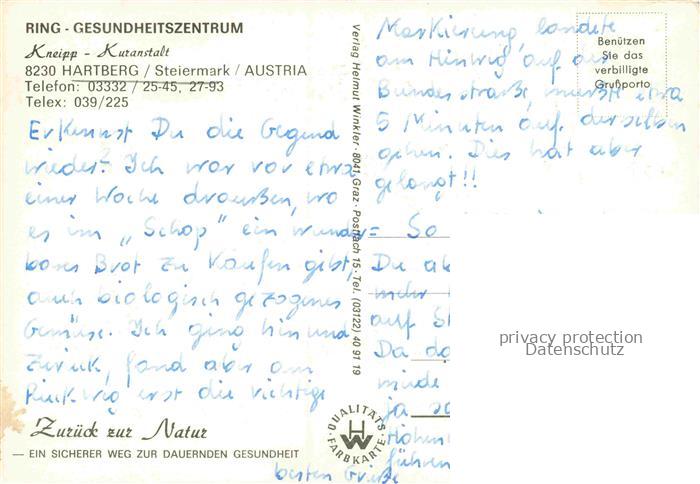 RING - GESUNDHEITSZENTRUM
Kneipp - Kuranstalt
8230 HARTBERG / Steiermark / AUSTRIA
Telefon: 03332 / 25-45, 27-93
Telex: 039/225
Erkennst Du die Gegend
wieder? Ich war vor etwa
einer Woche draußen, wo
es im „Schop" ein wunder=
bares Brot zu kaufen gibt,
auch biologisch gezogenes
Gemüse. Ich ging hin und
zurück, fand aber am
Rückweg erst die richtige
Zurück zur Natur
— EIN SICHERER WEG ZUR DAUERNDEN GESUNDHEIT
Verlag Helmut Winkler · 8041 Graz · Postfach 15 · Tel. (03122) 40 91 19
Markierung, landete
am Hinweg auf der
Bundesstraße, mußte etwa
5 Minuten auf derselben
gehen. Dies hat aber
gelangt!!
So
Du
mehr
auf
Da
müde
ja
führen
besten Grüße
Benützen
Sie das
verbilligte
Grußporto
QUALITÄTS-FARBKARTE
HW
privacy protection
Datenschutz